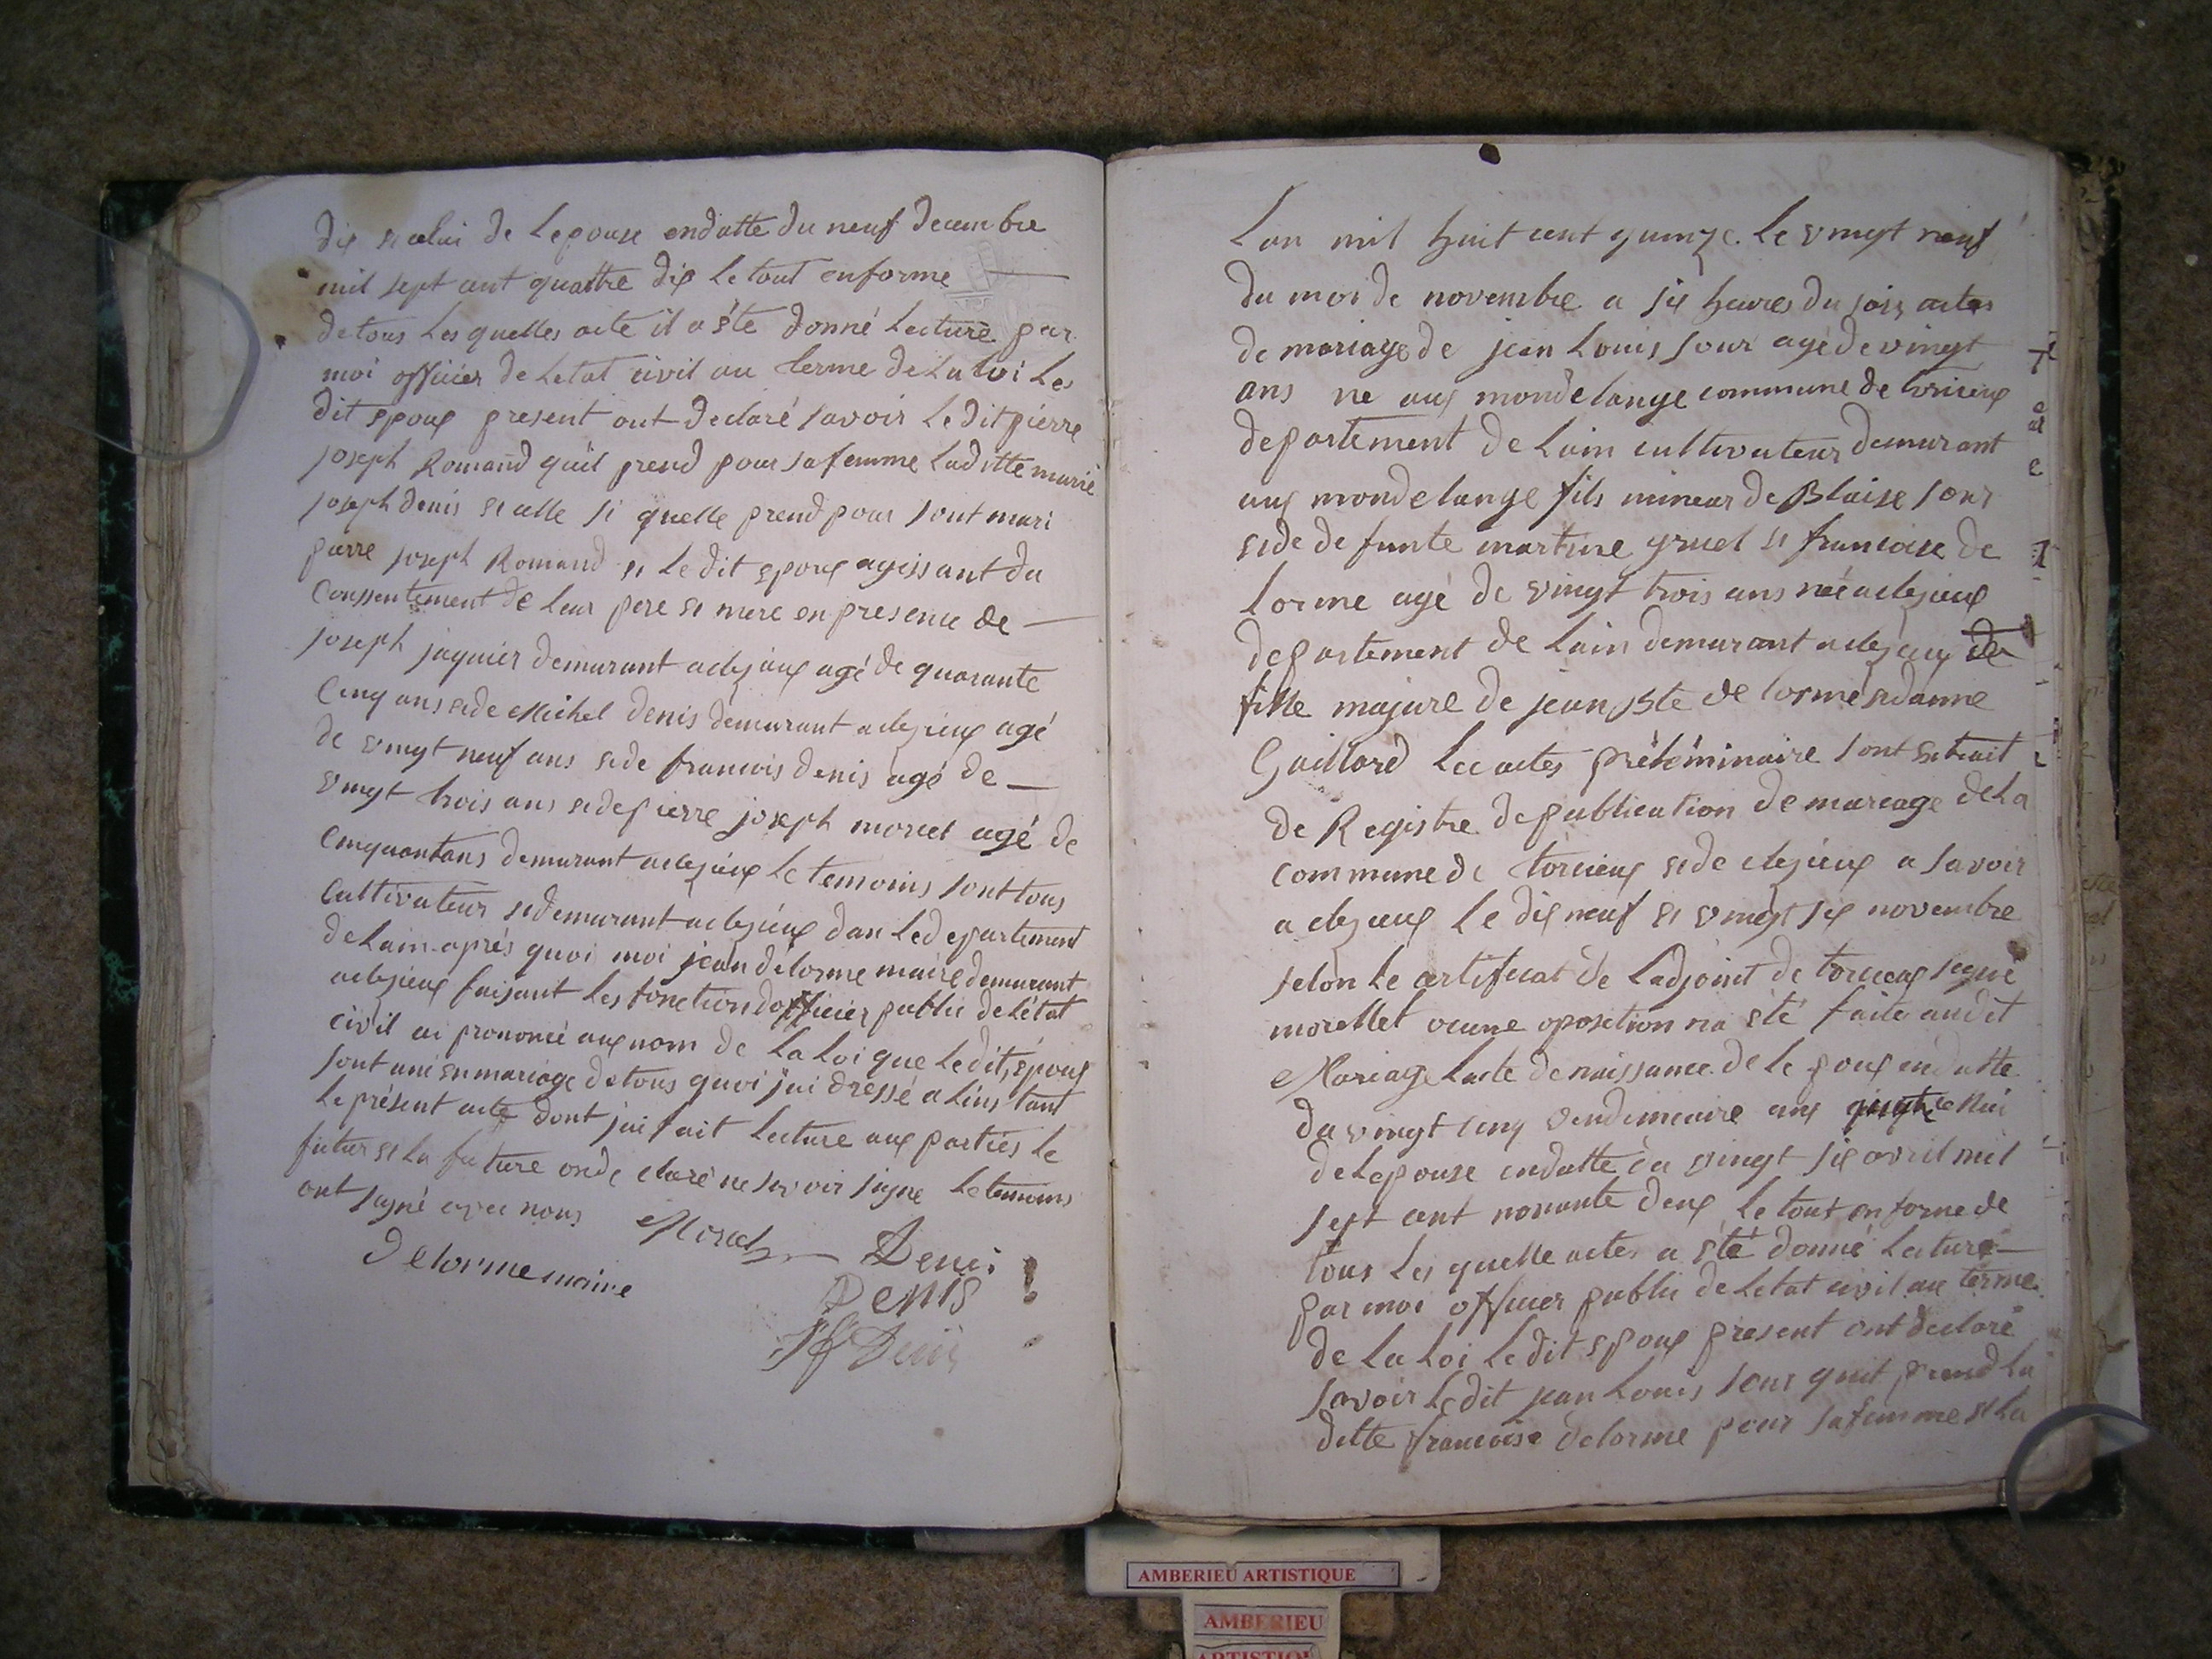 dix et celui de Lepouse endatte du neuf decembre
mil sept cent quattre dix Le tout enforme
de tous Les quelles acte il a été donné Lecture par
moi officier de Letat civil au terme de La loi Les
dit epoux present ont declaré savoir Le dit pierre
joseph Romand quil prend pour sa femme Laditte marie
joseph denis et celle si quelle prend pour sont mari
pierre joseph Romand et Le dit epoux agissant du
Conssentement de Leur pere et mere en presence de
joseph jaquier demurant aclezieux agé de quarante
Cinq ans et de Michel denis demurant aclezieux agé
de vingt neuf ans et de francois denis agé de
vingt trois ans et de pierre joseph morel agé de
Cinquantans demurant aclezieux Le temoins sont tous
Cultivateur et demurant aclezieux dan Le departement
de Lain aprés quoi moi jean delorme maire demurant
aclezieux faisant Les fonction dofficier public de Létat
civil ai prononcé aux nom de La Loi que Le dit, époux
sont uni en mariage de tous quoi jai dressé a Lins tant
Le présent acte dont jai fait Lecture aux parties Le
futur et La future onde claré ne savoir signe Le temoins
ont signé avec nous
Morel Denis
Delorme maire Denis
Denis
Lan mil huit cent quinze. Le vingt neuf
du moi de novembre a six heures du soir actes
de mariage de jean Louis jour agé de vingt
ans ne aux mondelange commune de torcieux
departement de Lain cultivateur demurant
aux mondelange fils mineur de Blaise jour
et de de funte martine gruel et francoise de
Lorme agé de vingt trois ans née aclezieux
departement de Lain demurant aclezieux de
fille majure de jean Bte de lorme et danne
Gaillard Les actes préléminaire sont extrait
de Registre de publication de mareage de La
commune de torcieux et de clezieux a savoir
a clezieux Le dix neuf et vingt six novembre
selon Le certificat de Ladjoint de torcieux signé
morellet ocune oposition na été faite audit
Mariage Lacte de naissance de Le poux en datte
du vingt cinq vendimiaire anx celui
de Lepouse endatte du vingt six avril mil
sept cent nonante deux Le tout en forme de
tous Les quelle actes a été donné Lecture
par moi officier public de Letat civil au terme
de La Loi Le dit epoux present ont declaré
savoir Le dit jean Louis jour quil prend La
ditte francoise delorme pour sa femme et La
AMBERIEU ARTISTIQUE
AMBERIEU
ARTISTIQUE